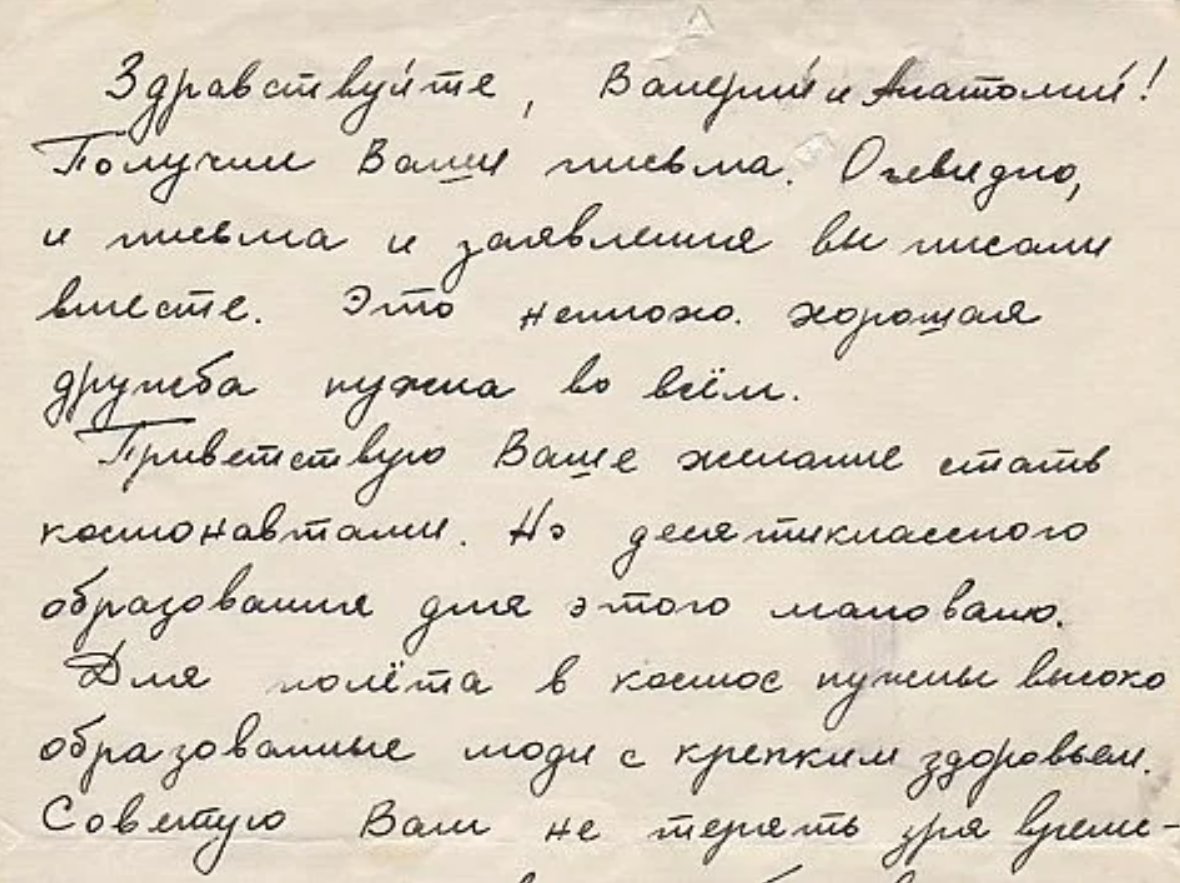 Здравствуйте, Валерий и Анатолий!
Получил Ваши письма. Очевидно,
и письма и заявления вы писали
вместе. Это неплохо. хорошая
дружба нужна во всём.
Приветствую Ваше желание стать
космонавтами. Но десятиклассного
образования для этого маловато.
Для полёта в космос нужны высоко
образованные люди с крепким здоровьем.
Советую Вам не терять зря време-